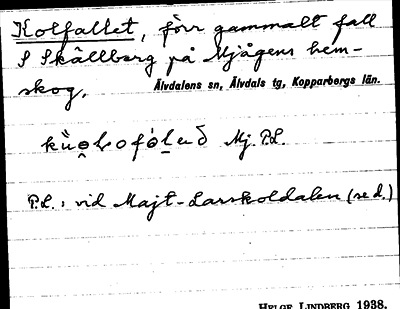 Kolfallet, förr gammalt fall
S Skållberg på Mjågens hem-
skog.
Älvdalens sn, Älvdals tg, Kopparbergs län.
Mj. P.L.
P.L.: vid Majt-Larskoldalen (se d.)
HELGE LINDBERG 1938.